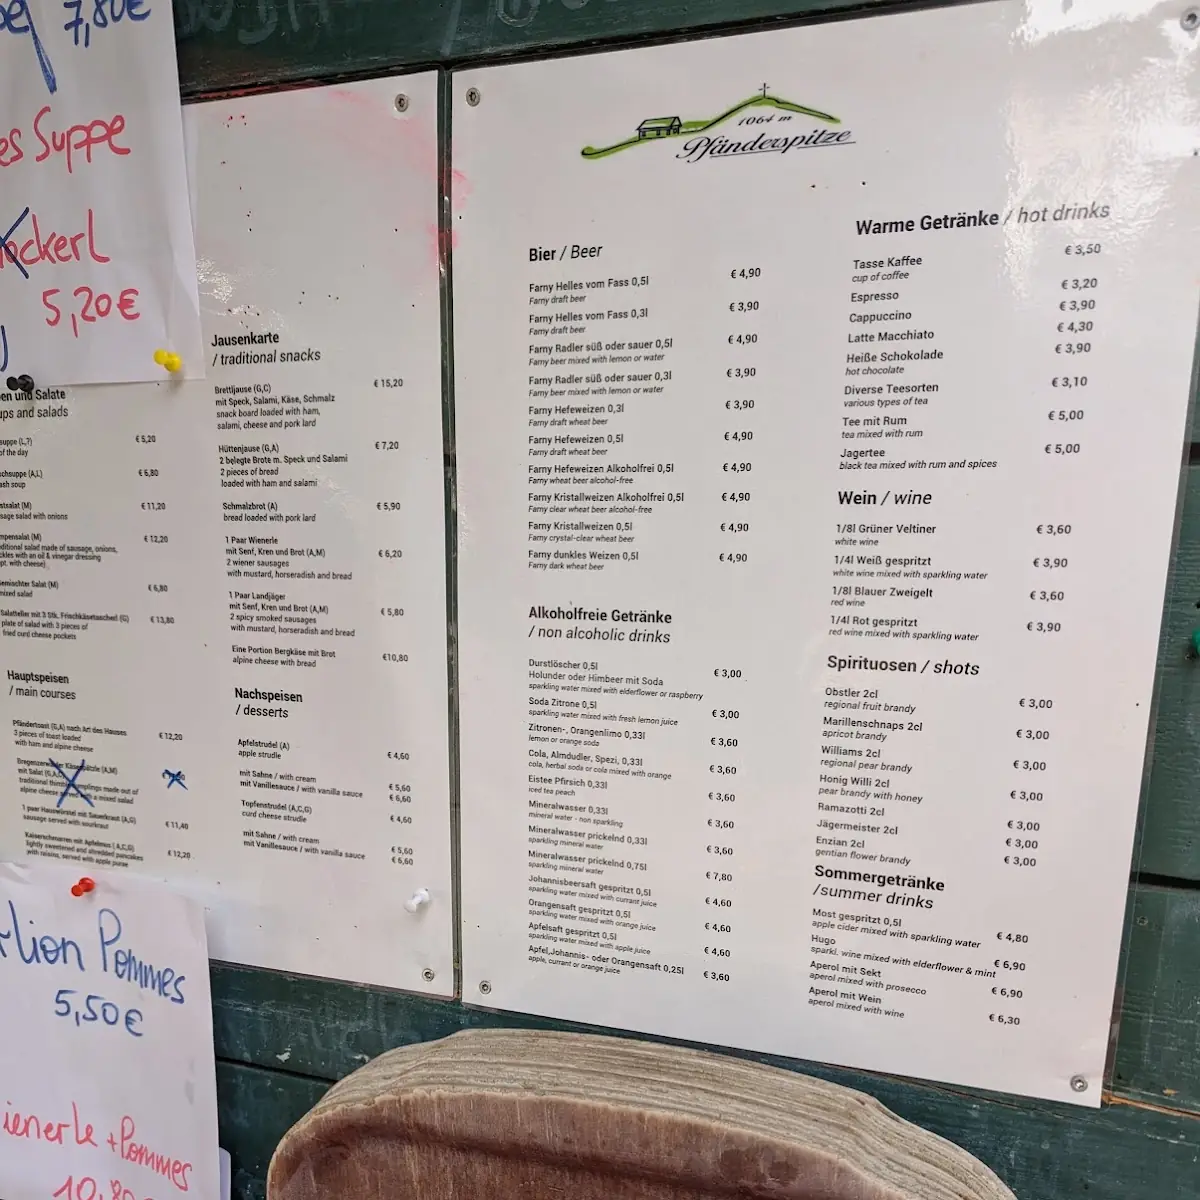 7,80€
es Suppe
ockerl
5,20€
en und Salate
ups and salads
suppe (L,7) € 5,20
of the day
chsuppe (A,L) € 6,80
ash soup
stsalat (M) € 11,20
sage salad with onions
mpensalat (M) € 12,20
ditional salad made of sausage, onions,
ckles with an oil & vinegar dressing
pt. with cheese)
emischter Salat (M) € 6,80
mixed salad
Salatteller mit 3 Stk. Frischkäsetascherl (G) € 13,80
plate of salad with 3 pieces of
fried curd cheese pockets
Hauptspeisen
/ main courses
Pfändertoast (G,A) nach Art des Hauses € 12,20
3 pieces of toast loaded
with ham and alpine cheese
Bregenzerwälder Käsespätzle (A,M)
mit Salat (G,A,
traditional dumplings made out of
alpine cheese served with a mixed salad
1 paar Hauswürstel mit Sauerkraut (A,G) € 11,40
sausage served with sourkraut
Kaiserschmarren mit Apfelmus (A,C,G) € 12,20
lightly sweetened and shredded pancakes
with raisins, served with apple puree
tion Pommes
5,50€
ienerle + Pommes
10,80
Jausenkarte
/ traditional snacks
Brettljause (G,C) € 15,20
mit Speck, Salami, Käse, Schmalz
snack board loaded with ham,
salami, cheese and pork lard
Hüttenjause (G,A) € 7,20
2 belegte Brote m. Speck und Salami
2 pieces of bread
loaded with ham and salami
Schmalzbrot (A) € 5,90
bread loaded with pork lard
1 Paar Wienerle
mit Senf, Kren und Brot (A,M) € 6,20
2 wiener sausages
with mustard, horseradish and bread
1 Paar Landjäger
mit Senf, Kren und Brot (A,M) € 5,80
2 spicy smoked sausages
with mustard, horseradish and bread
Eine Portion Bergkäse mit Brot €10,80
alpine cheese with bread
Nachspeisen
/ desserts
Apfelstrudel (A) € 4,60
apple strudle
mit Sahne / with cream € 5,60
mit Vanillesauce / with vanilla sauce € 6,60
Topfenstrudel (A,C,G) € 4,60
curd cheese strudle
mit Sahne / with cream € 5,60
mit Vanillesauce / with vanilla sauce € 6,60
1064 m
Pfänderspitze
Bier / Beer
Farny Helles vom Fass 0,5l € 4,90
Farny draft beer
Farny Helles vom Fass 0,3l € 3,90
Farny draft beer
Farny Radler süß oder sauer 0,5l € 4,90
Farny beer mixed with lemon or water
Farny Radler süß oder sauer 0,3l € 3,90
Farny beer mixed with lemon or water
Farny Hefeweizen 0,3l € 3,90
Farny draft wheat beer
Farny Hefeweizen 0,5l € 4,90
Farny draft wheat beer
Farny Hefeweizen Alkoholfrei 0,5l € 4,90
Farny wheat beer alcohol-free
Farny Kristallweizen Alkoholfrei 0,5l € 4,90
Farny clear wheat beer alcohol-free
Farny Kristallweizen 0,5l € 4,90
Farny crystal-clear wheat beer
Farny dunkles Weizen 0,5l € 4,90
Farny dark wheat beer
Alkoholfreie Getränke
/ non alcoholic drinks
Durstlöscher 0,5l € 3,00
Holunder oder Himbeer mit Soda
sparkling water mixed with elderflower or raspberry
Soda Zitrone 0,5l € 3,00
sparkling water mixed with fresh lemon juice
Zitronen-, Orangenlimo 0,33l € 3,60
lemon or orange soda
Cola, Almdudler, Spezi, 0,33l € 3,60
cola, herbal soda or cola mixed with orange
Eistee Pfirsich 0,33l € 3,60
iced tea peach
Mineralwasser 0,33l € 3,60
mineral water - non sparkling
Mineralwasser prickelnd 0,33l € 3,60
sparkling mineral water
Mineralwasser prickelnd 0,75l € 7,80
sparkling mineral water
Johannisbeersaft gespritzt 0,5l € 4,60
sparkling water mixed with currant juice
Orangensaft gespritzt 0,5l € 4,60
sparkling water mixed with orange juice
Apfelsaft gespritzt 0,5l € 4,60
sparkling water mixed with apple juice
Apfel,Johannis- oder Orangensaft 0,25l € 3,60
apple, currant or orange juice
Warme Getränke / hot drinks
Tasse Kaffee € 3,50
cup of coffee
Espresso € 3,20
Cappuccino € 3,90
Latte Macchiato € 4,30
Heiße Schokolade € 3,90
hot chocolate
Diverse Teesorten € 3,10
various types of tea
Tee mit Rum € 5,00
tea mixed with rum
Jagertee € 5,00
black tea mixed with rum and spices
Wein / wine
1/8l Grüner Veltiner € 3,60
white wine
1/4l Weiß gespritzt € 3,90
white wine mixed with sparkling water
1/8l Blauer Zweigelt € 3,60
red wine
1/4l Rot gespritzt € 3,90
red wine mixed with sparkling water
Spirituosen / shots
Obstler 2cl € 3,00
regional fruit brandy
Marillenschnaps 2cl € 3,00
apricot brandy
Williams 2cl € 3,00
regional pear brandy
Honig Willi 2cl € 3,00
pear brandy with honey
Ramazotti 2cl € 3,00
Jägermeister 2cl € 3,00
Enzian 2cl € 3,00
gentian flower brandy
Sommergetränke
/summer drinks
Most gespritzt 0,5l € 4,80
apple cider mixed with sparkling water
Hugo € 6,90
sparkl. wine mixed with elderflower & mint
Aperol mit Sekt € 6,90
aperol mixed with prosecco
Aperol mit Wein € 6,30
aperol mixed with wine